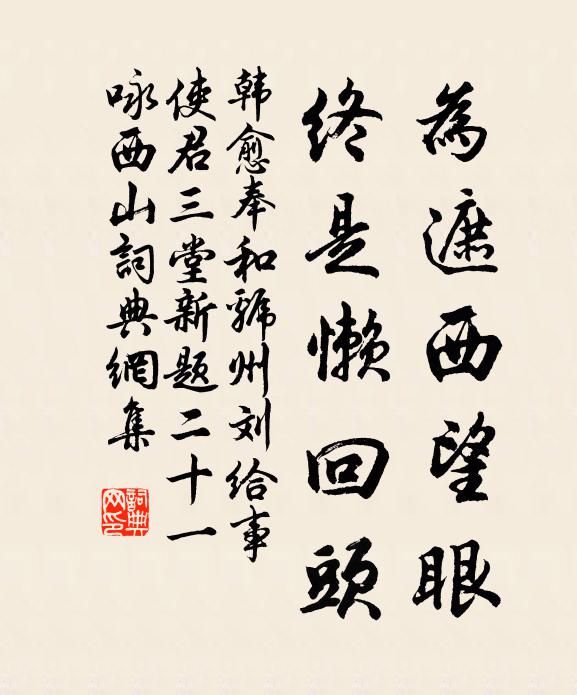 為遮西望眼
終是懶回頭
韩愈奉和虢州刘给事
使君三堂新题二十一
咏西山詞典網集
詞典网印